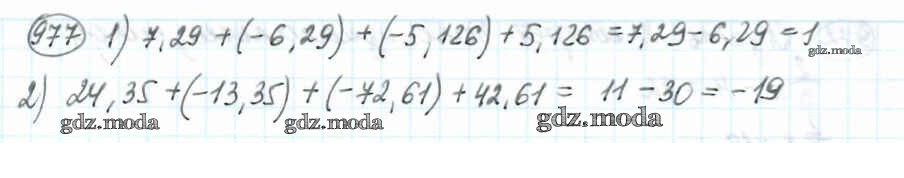 977 1) 7,29 + (-6,29) + (-5,126) + 5,126 = 7,29 - 6,29 = 1
gdz.moda
2) 24,35 + (-13,35) + (-72,61) + 42,61 = 11 - 30 = -19
gdz.moda gdz.moda gdz.moda